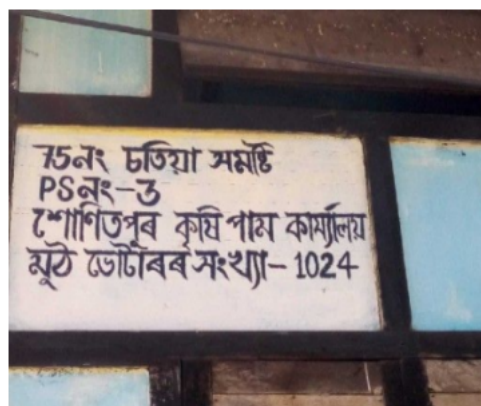 75নং চতিয়া সমষ্টি
PSনং-3
শোণিতপুৰ কৃষি পাম কাৰ্য্যালয়
মুঠ ভোটাৰৰ সংখ্যা- 1024